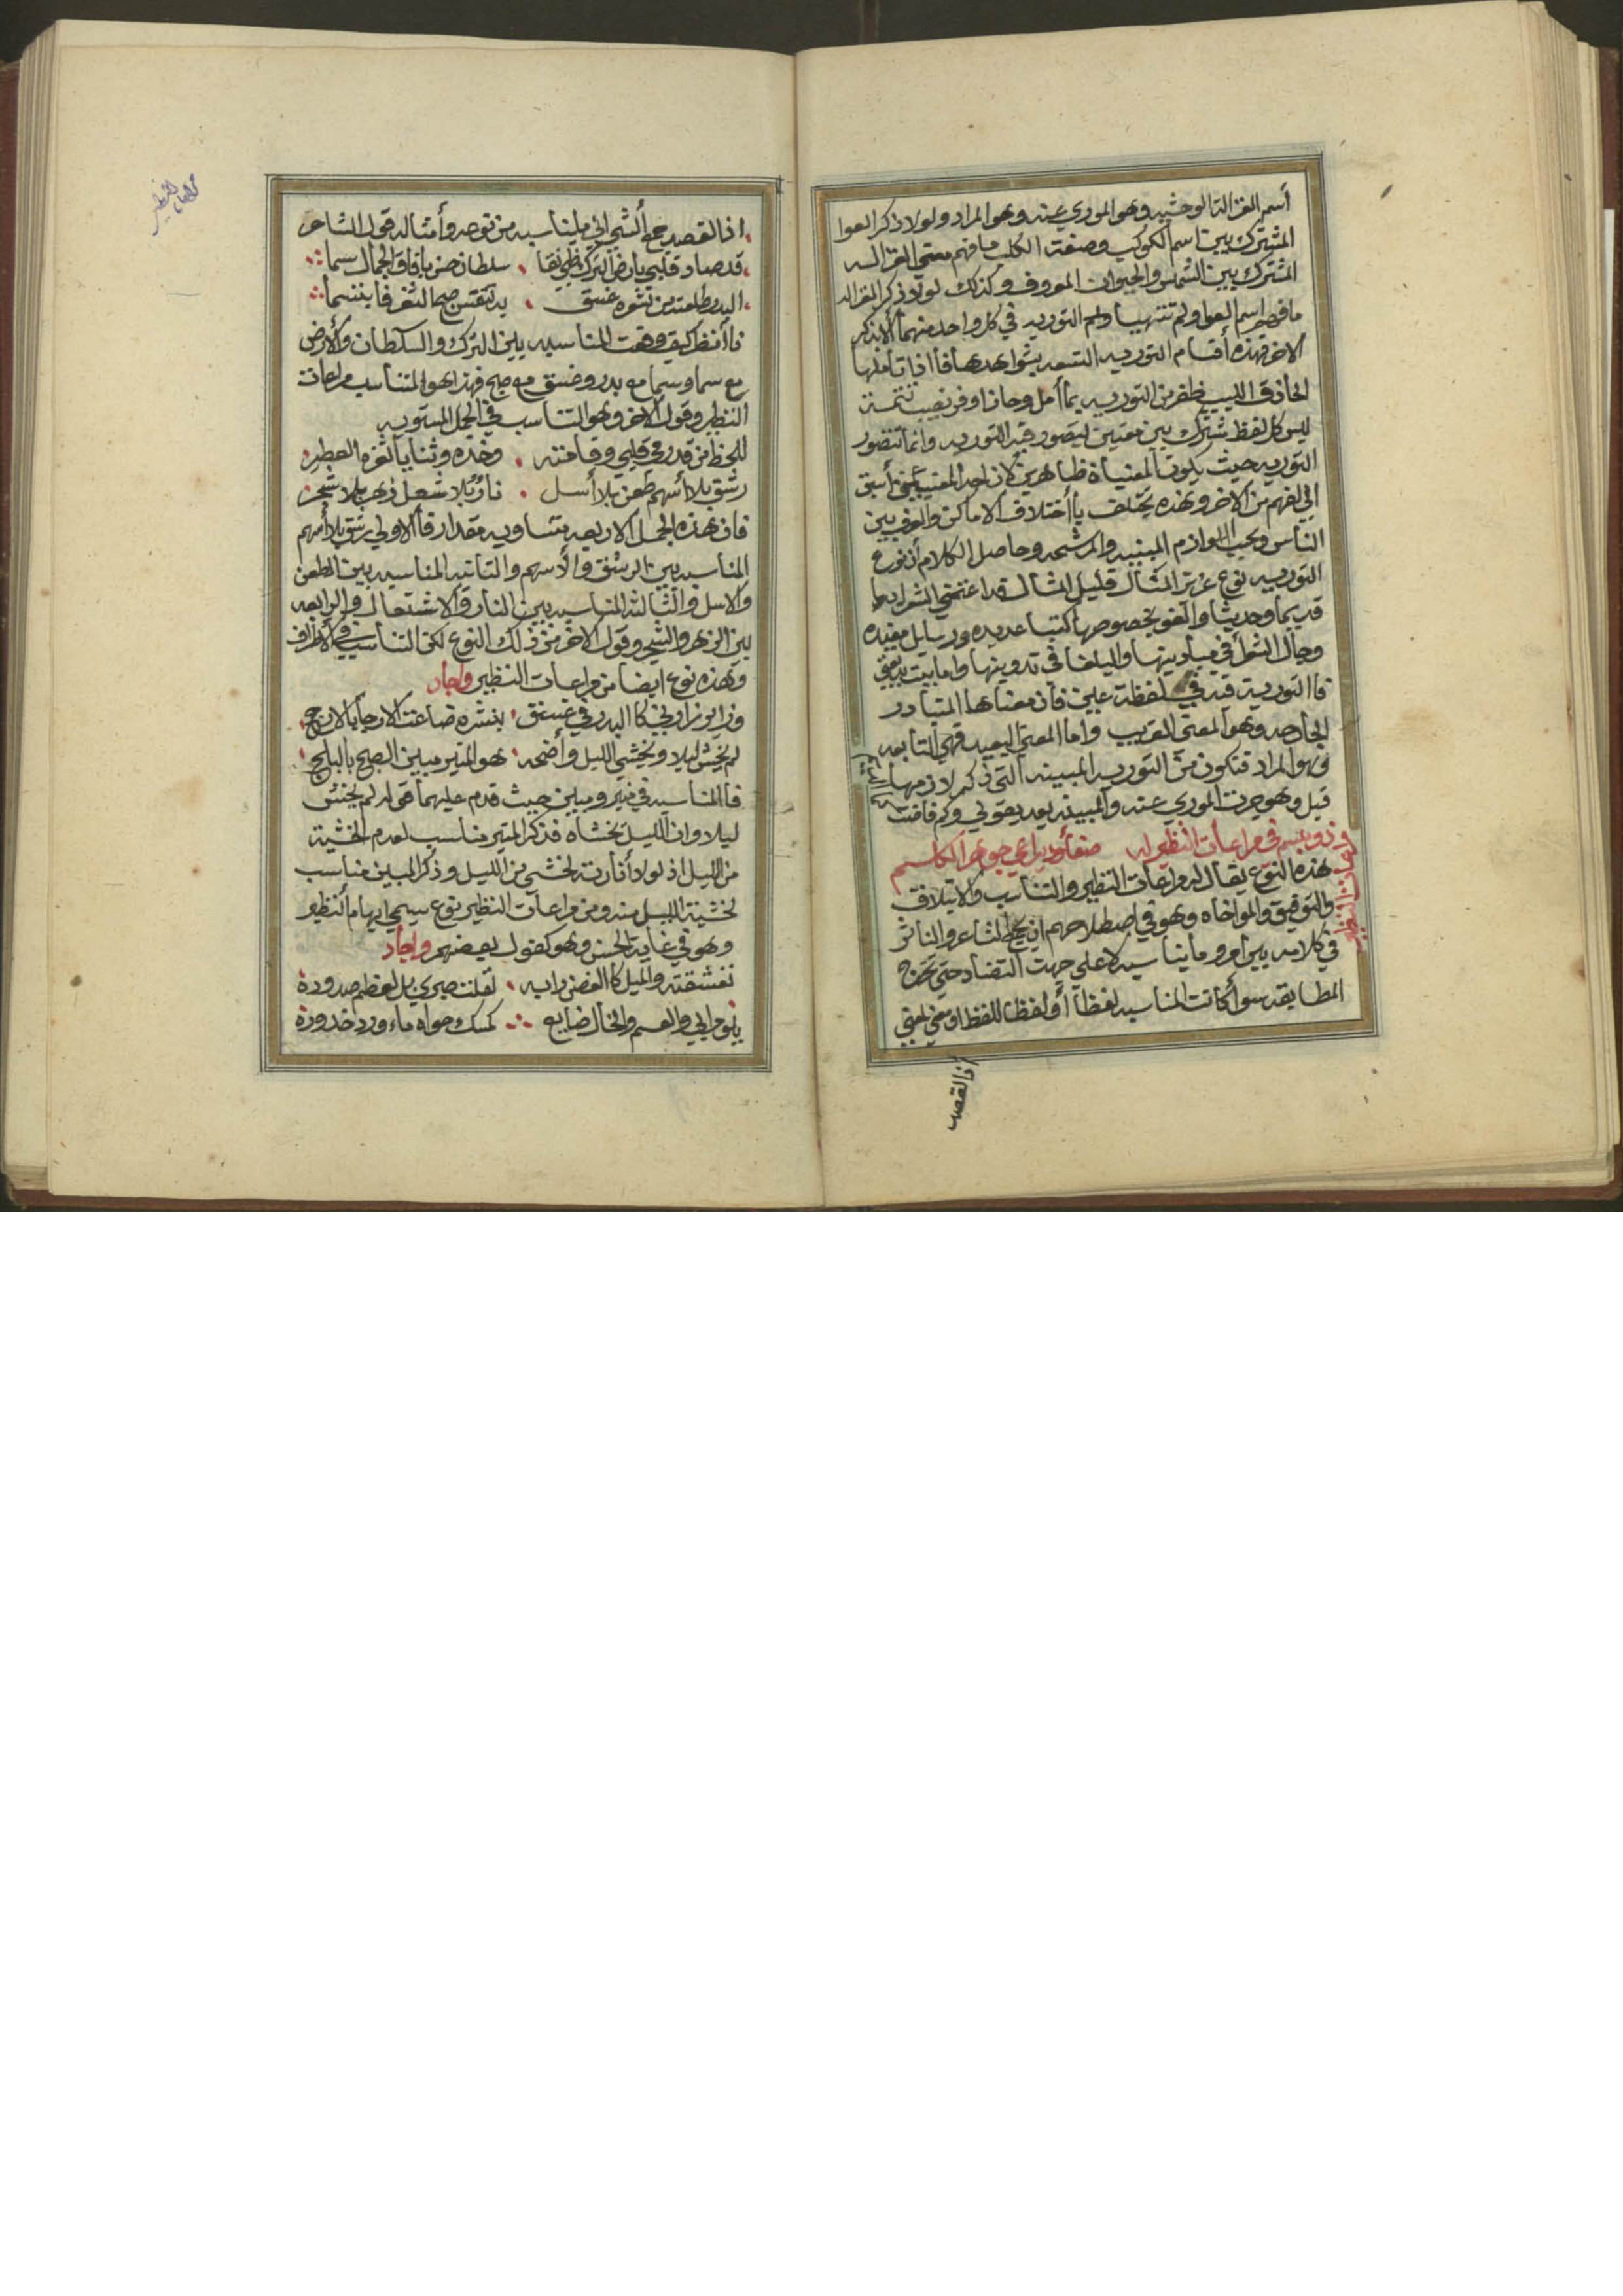 أسم الغزالة الوحشيه وهو الموري عنه وهو المراد ولولا ذكر العوا
المشترك بين اسم الكوكب وصفت الكلب ما فهم معني الغزاله
المشترك بين الشمس والحيوان المعروف وكذلك لولا ذكر الغزاله
ما فهم اسم العوا ولم تتهيأ ولم التوريه في كل واحد منهما الا بذكر
الاخر فهذه أقسام التوريه التسعه بشواهدها فأاذا تأملها
الحاذق اللبيب ظفر من التوريه بما أمل وحاز اوفر نصيب تتمة
ليس كل لفظ مشترك بين معنيين ليتصور فيه التوريه وانما تتصور
التوريه حيث يكونا المعنيان ظاهرين لان احد المعنيين أسبق
الي الفهم من الاخر وهذه يختلف بأختلاف الاماكن والعرف بين
الناس وبحيث اللوازم المبينيه والمرشحه وحاصل الكلام أن نوع
التوريه نوع عزيز المثال قليل المثال قد اعتني الشرا بها
قديما وحديثا والفو بخصوصها كتبا عديده ورسايل مفيده
وجال الشعرأ في ميادينها والبلغا في تدوينها واما بيت بديعتي
فاالتورية فيه في لفظة عين فأن معناها المتبادر
الجارحه وهو المعني القريب واما المعني البعيد فهي التابعه
وهو المراد فتكون من التوريه المبينه التي ذكر لازمها
قبل وهو جرت الموري عنه والمبينه بعد بقولي وكم فاضت
وذو مبسم في مراعات النظير له صفا ودر يراعي جوهر الكلم
هذه النوع يقال له مراعات النظير والتناسب والايتلاف
والتوفيق والمواخاه وهو في اصطلاحهم ان يجمع الشاعر والناثر
في كلامه بين أمر وما يناسبه لا علي جهت التضاد حتي تخرج
المطابقه سوأ كانت المناسبه لفظا أو لفظا للفظ او معني لمعني
اذ القصد
اذ القصد جمع الشي الي ما يناسبه من نوعه وأمثاله قول الشاعر
قد صاد قلبي بارض الترك ظبي نقا سلطان حسن بافاق الجمال سما
البدر طلعته من شعره غسق يد تنفس صبحا لثغر فا بتسما
فاأنظر كيف وقعت المناسبه بين الترك والسلطان والأرض
مع سما وسما مع بدر وغسق مع صبح فهذا هو المتناسب مراعات
النظير وقول الاخر وهو التناسب في الجمل المستويه
للحظ من قد رمي قلبي وقامته وخده وثنايا ثغره العطر
رشق بلا أسهم طعن بلا أسل نار بلا شعل زهر بلا شجر
فان هذه الجمل الاربعه متساويه مقدار فأالاولي رشق بلا أسهم
المناسبه بين الرشق والأسهم والتانيه المناسبه بين الطعن
والاسل والثالثه المناسبه بين النار والاشتعال والرابعه
بين الزهر والشجر وقول الاخر من ذلك النوع لكن التناسب في الأطراف
وهذه نوع ايضا من مراعات النظير وأجاد
وزاير زاربي كا البدر في غسق بنشره ضاعت الارجأ بالارج
لم يخش ليلا ويخشي الليل وأضحه هو المنير مبين الصبح بالبلج
فاالمناسبه في منير ومبين حيث قدم عليهما قوله لم يخش
ليلا وان الليل يخشاه فذكر المنير مناسب لعدم الخشية
من الليل اذ لولا أنارته لخشي من الليل وذكر المبين مناسب
لخشية الليل منه ومن مراعات النظير نوع سمي ايهام النظير
وهو في غاية الحسن وهو كقول بعضهم وأجاد
تعشقته والميل كا الغصن دابه صدوده
والعم والخال ضايع كمسك حواه ماء ورد خدوده
مراعات النظير